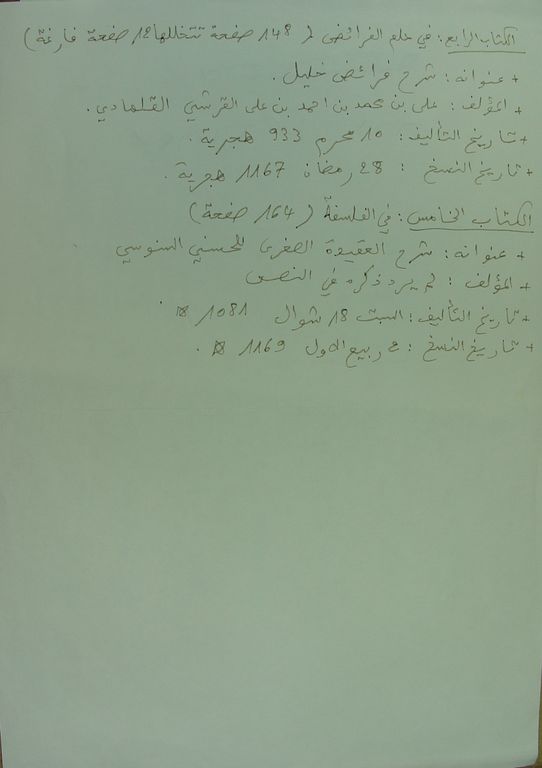 الكتاب الرابع: في علم الفرائض ( 148 صفحة تتخللها 12 صفحة فارغة)
+ عنوانه: شرح فرائض خليل.
+ المؤلف: علي بن محمد بن احمد بن علي القرشي القلصادي.
+ تاريخ التأليف: 10 محرم 933 هجرية.
+ تاريخ النسخ: 28 رمضان 1167 هجرية.
الكتاب الخامس: في الفلسفة (164 صفحة)
+ عنوانه: شرح العقيدة الصغرى للحسني السنوسي
+ المؤلف: لم يرد ذكره في النص
+ تاريخ التأليف: السبت 18 شوال 1081
+ تاريخ النسخ: 2 ربيع الاول 1169